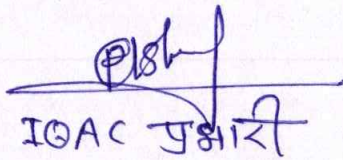 IQAC प्रभारी